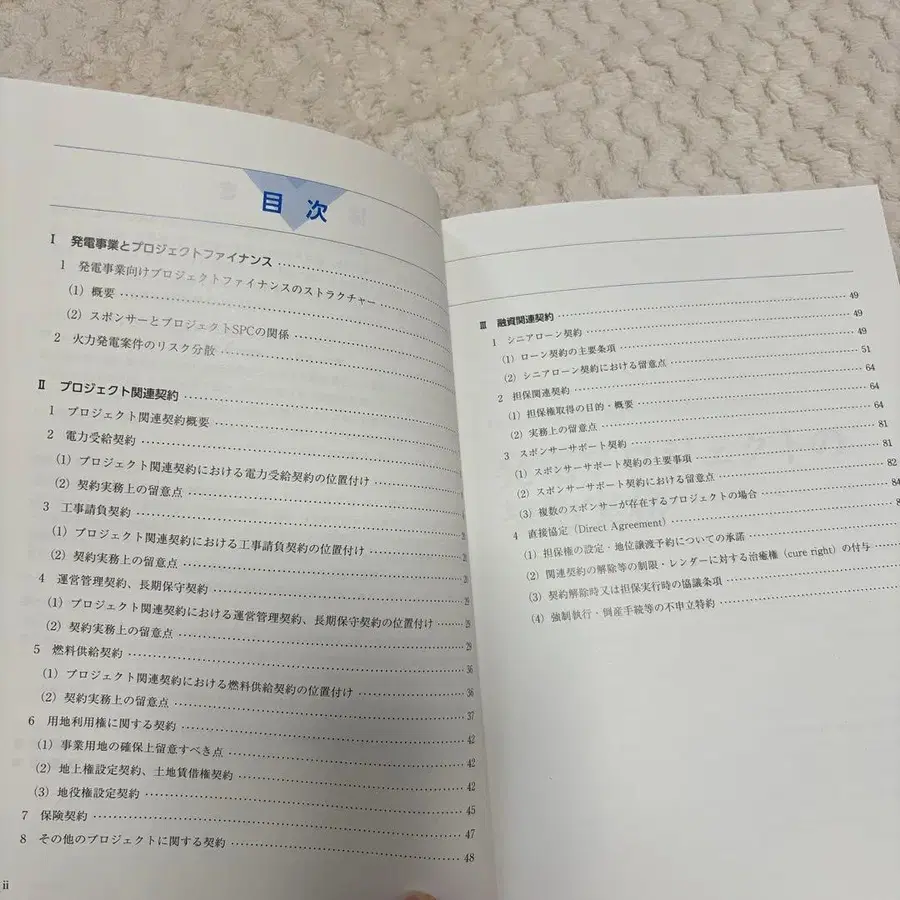 目次
Ⅰ 発電事業とプロジェクトファイナンス
1 発電事業向けプロジェクトファイナンスのストラクチャー
(1) 概要
(2) スポンサーとプロジェクトSPCの関係
2 火力発電案件のリスク分散
Ⅱ プロジェクト関連契約
1 プロジェクト関連契約概要
2 電力受給契約
(1) プロジェクト関連契約における電力受給契約の位置付け
(2) 契約実務上の留意点
3 工事請負契約
(1) プロジェクト関連契約における工事請負契約の位置付け
(2) 契約実務上の留意点
4 運営管理契約、長期保守契約 29
(1) プロジェクト関連契約における運営管理契約、長期保守契約の位置付け 29
(2) 契約実務上の留意点 29
5 燃料供給契約 36
(1) プロジェクト関連契約における燃料供給契約の位置付け 36
(2) 契約実務上の留意点 37
6 用地利用権に関する契約 42
(1) 事業用地の確保上留意すべき点 42
(2) 地上権設定契約、土地賃借権契約 42
(3) 地役権設定契約 45
7 保険契約 47
8 その他のプロジェクトに関する契約 48
ii
Ⅲ 融資関連契約 49
1 シニアローン契約 49
(1) ローン契約の主要条項 49
(2) シニアローン契約における留意点 51
2 担保関連契約 64
(1) 担保権取得の目的・概要 64
(2) 実務上の留意点 64
3 スポンサーサポート契約 81
(1) スポンサーサポート契約の主要事項 81
(2) スポンサーサポート契約における留意点 82
(3) 複数のスポンサーが存在するプロジェクトの場合 84
4 直接協定（Direct Agreement）
(1) 担保権の設定・地位譲渡予約についての承諾
(2) 関連契約の解除等の制限・レンダーに対する治癒権（cure right）の付与
(3) 契約解除時又は担保実行時の協議条項
(4) 強制執行・倒産手続等の不申立特約